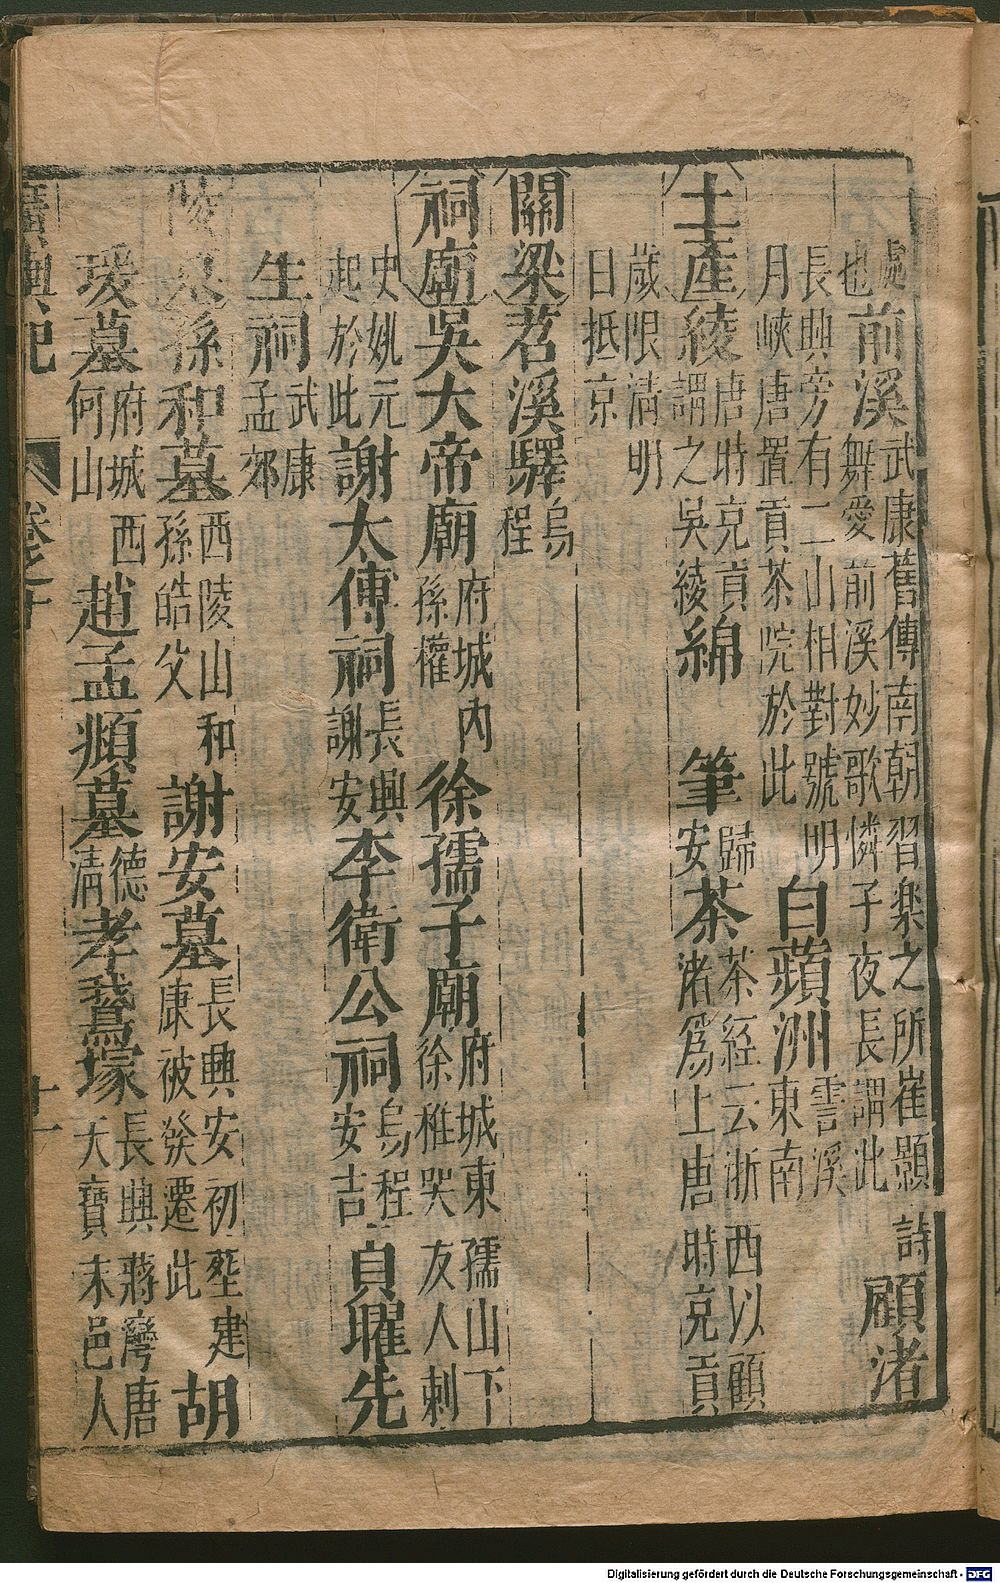 處
也前溪武康舊傳南朝習樂之所崔顥詩
舞愛前溪妙歌憐子夜長謂此顧渚
長興旁有二山相對號明
月峽唐置貢茶院於此白蘋洲霅溪
東南
土產綾唐時充貢
謂之吳綾綿 筆歸
安茶茶經云浙西以顧
渚爲上唐時充貢
歲限清明
日抵京
關梁苕溪驛烏
程
祠廟吳大帝廟府城內
孫權徐孺子廟府城東孺山下
徐稚哭友人刺
史姚元
起於此謝太傅祠長興
謝安李衛公祠烏程
安吉貞曜先
生祠武康
孟郊
陵墓孫和墓西陵山和
孫皓父謝安墓長興安初塟建
康被發遷此胡
瑗墓府城西
何山趙孟頫墓德
清孝鵞塚長興蔣灣唐
天寶末邑人
廣輿記 卷之十 十一
Digitalisierung gefördert durch die Deutsche Forschungsgemeinschaft - DFG